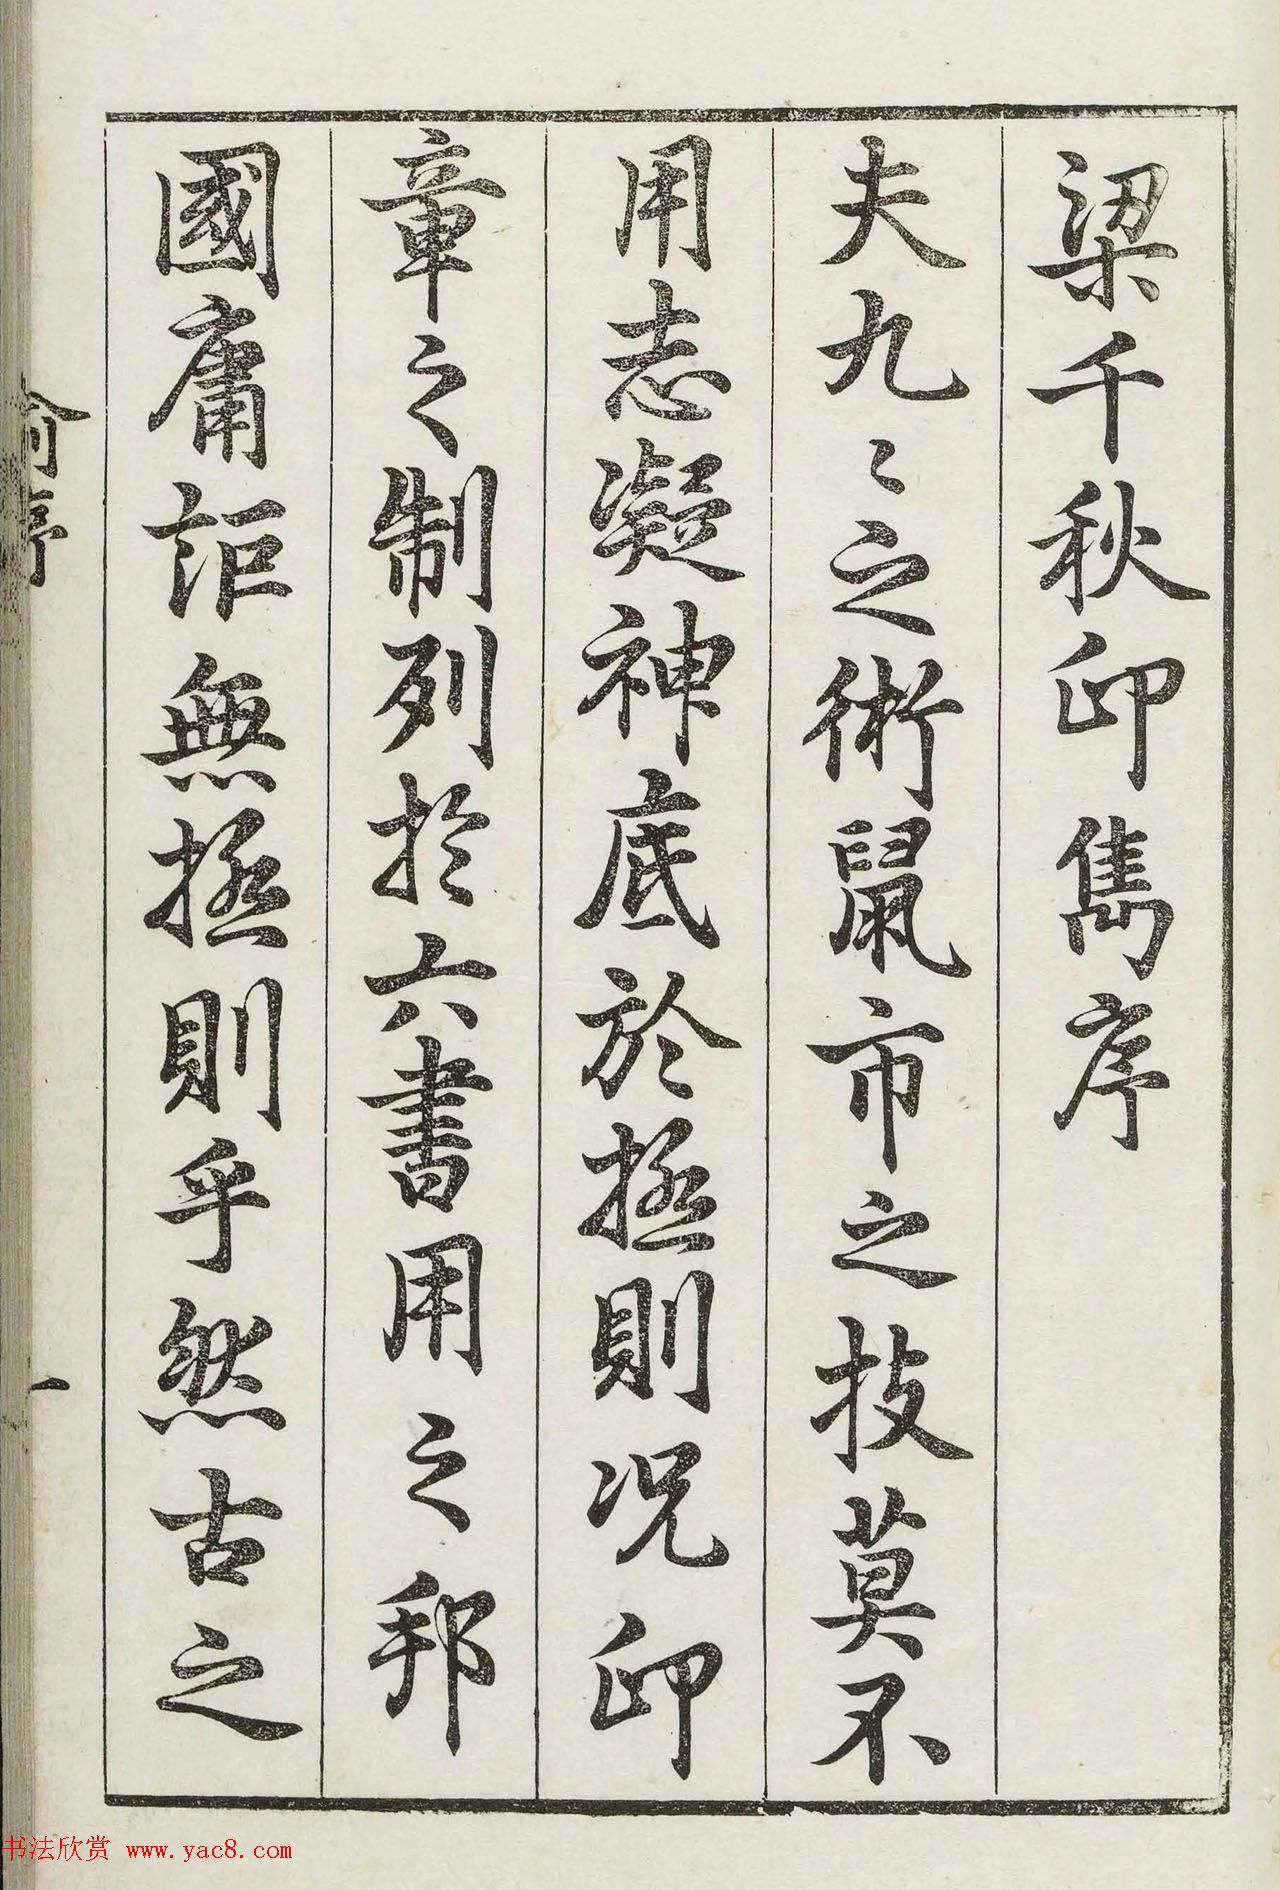 梁千秋印雋序
夫九〻之術鼠市之技莫不
用志凝神底於極則况印
章之制列於六書用之邦
國庸詎無極則乎然古之
俞序
一
书法欣赏 www.yac8.com